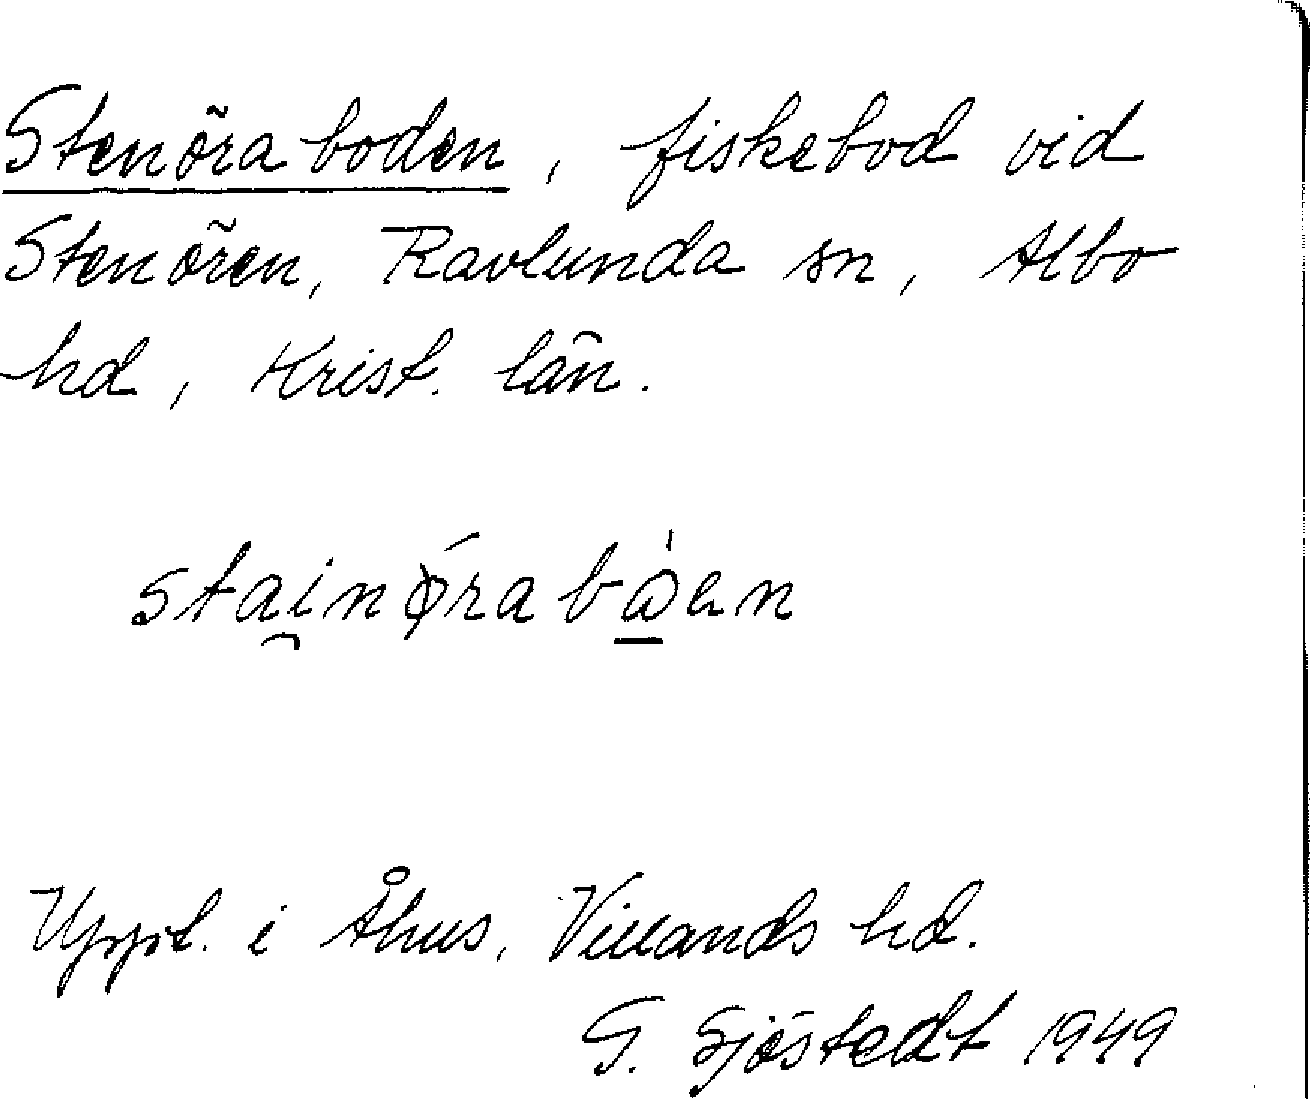 Stenöraboden, fiskebod vid
Stenören, Ravlunda sn, Albo
hd, Krist. län.
stai̯nǿrabὼ̲en
Uppt. i Åhus, Villands hd.
G. Sjöstedt 1949